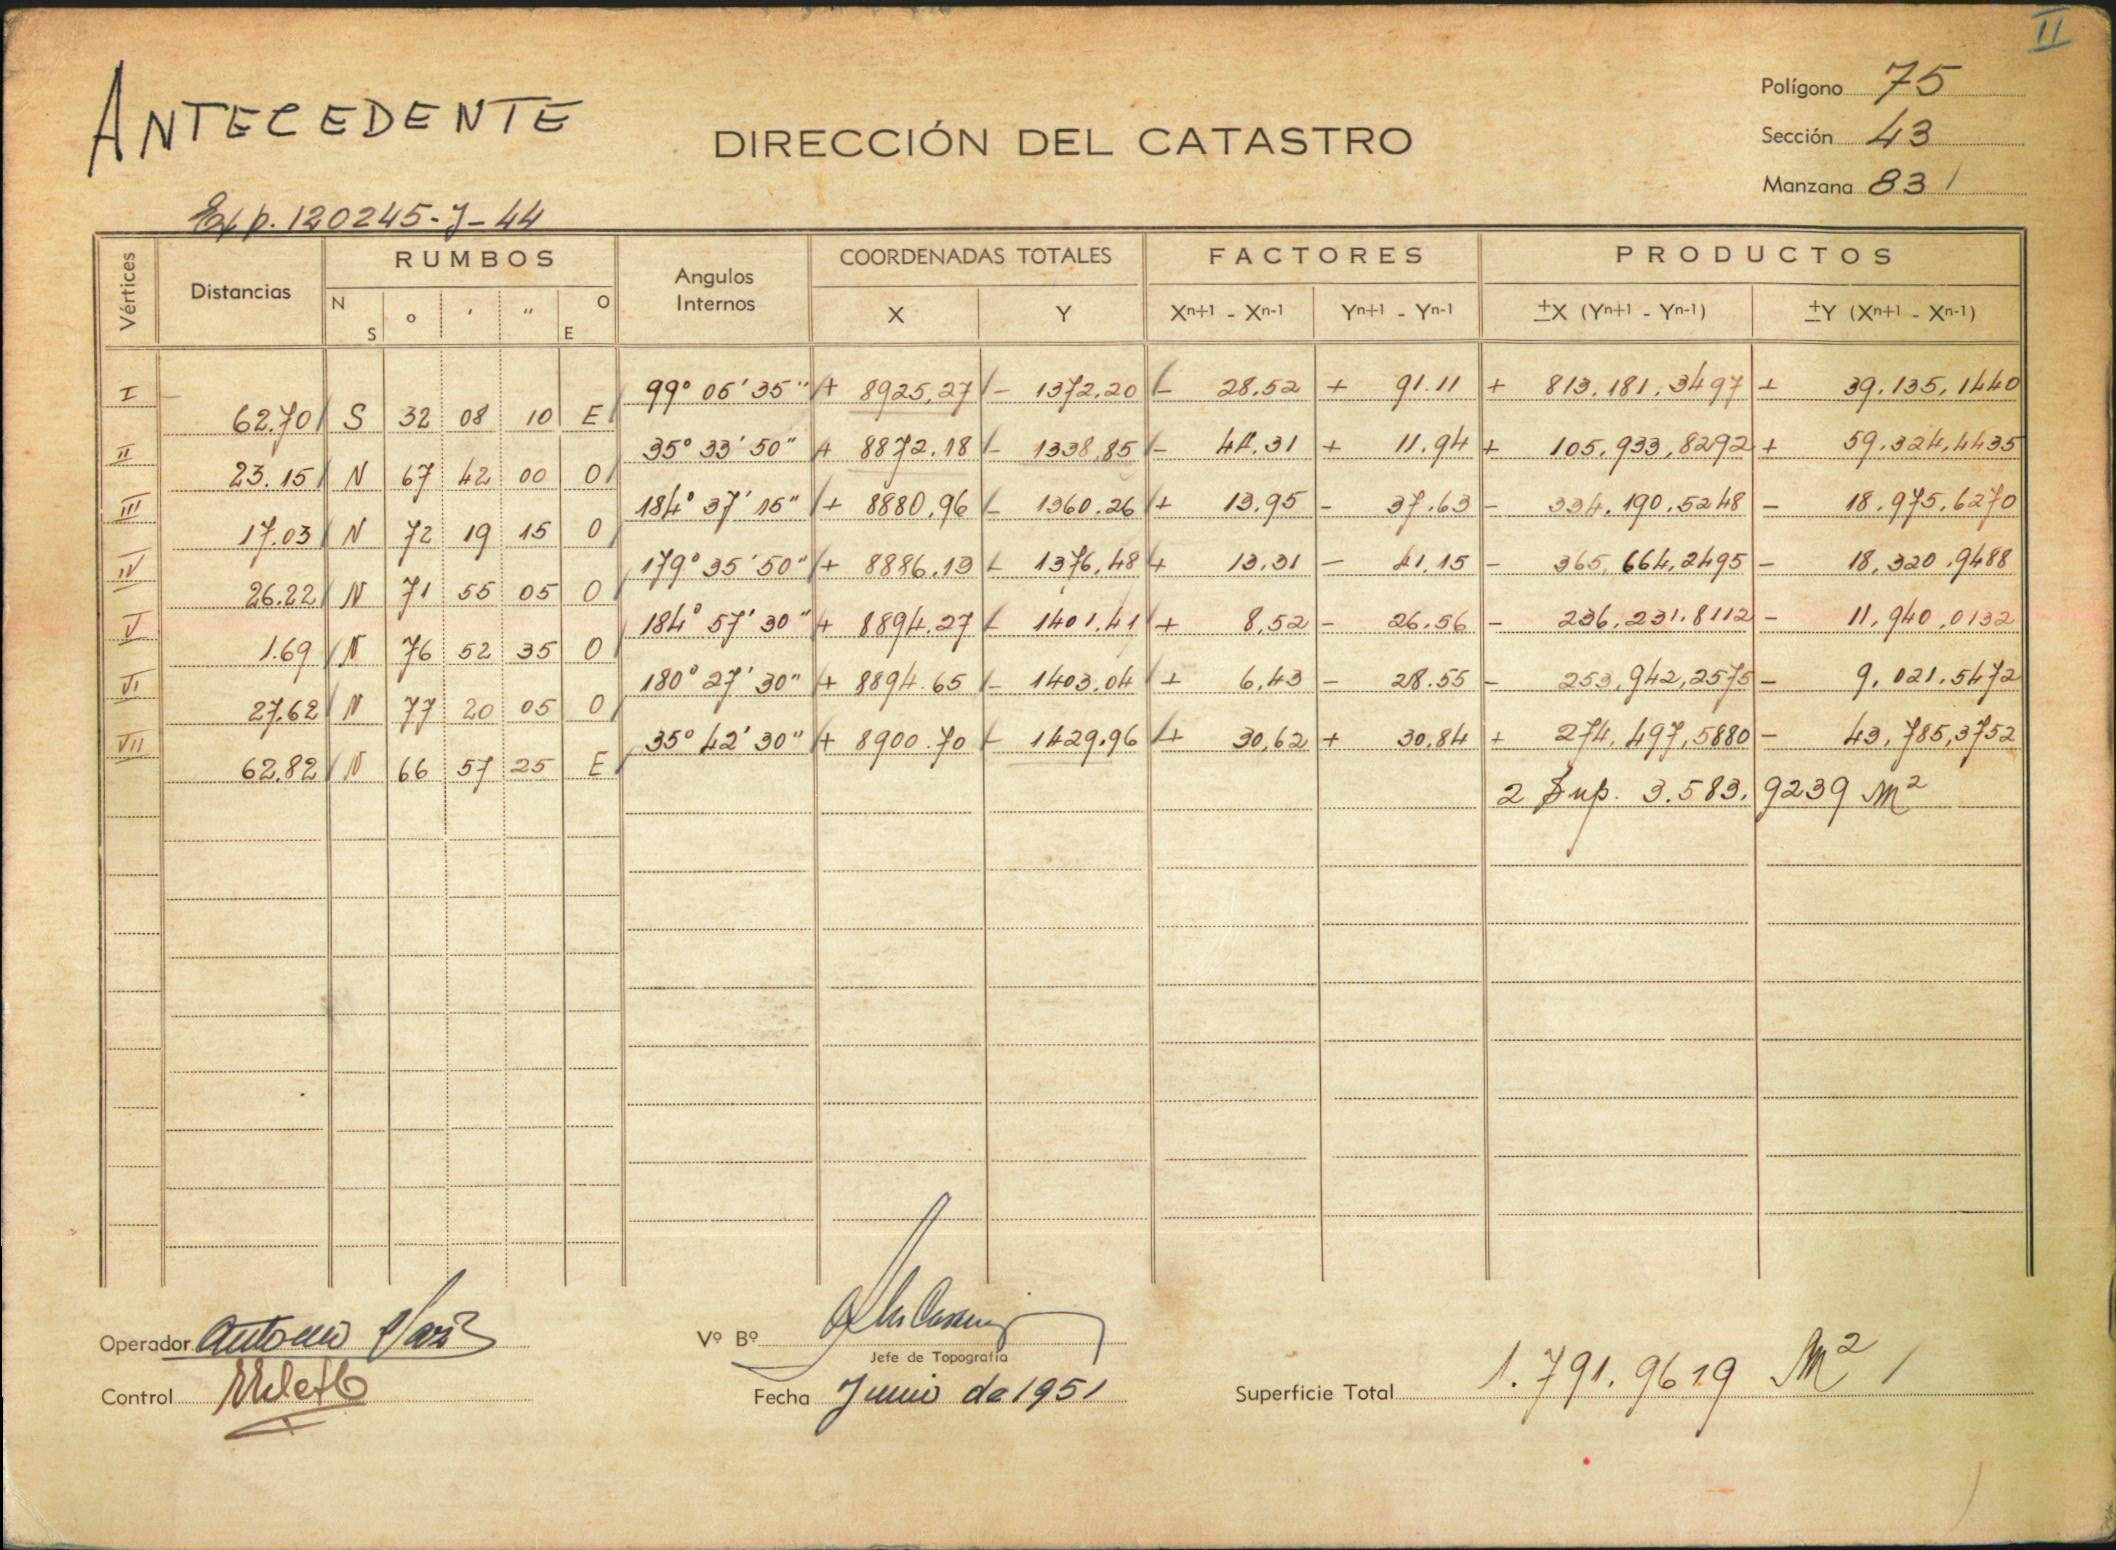 II
ANTECEDENTE
DIRECCIÓN DEL CATASTRO
Polígono 75
Sección 43
Manzana 831
Exp. 120245-J-44
Vértices Distancias RUMBOS Angulos Internos COORDENADAS TOTALES FACTORES PRODUCTOS
N S o ' " O E X Y Xn+1 - Xn-1 Yn+1 - Yn-1 ±X (Yn+1 - Yn-1) ±Y (Xn+1 - Xn-1)
I 99° 06' 35" + 8925,27 - 1372,20 - 28,52 + 91.11 + 813.181,3497 + 39.135,1440
62.70 S 32 08 10 E
II 35° 33' 50" + 8872.18 - 1338,85 - 44.31 + 11.94 + 105,933,8292 + 59.324,4435
23.15 N 67 42 00 O
III 184° 37' 15" + 8880,96 - 1360.26 + 13,95 - 37.63 - 334,190,5248 - 18.975,6270
17.03 N 72 19 15 O
IV 179° 35' 50" + 8886.13 - 1376,48 + 13,31 - 41,15 - 365,664,2495 - 18,320,9488
26.22 N 71 55 05 O
V 184° 57' 30" + 8894.27 - 1401,41 + 8,52 - 26.56 - 236,231.8112 - 11,940,0132
1.69 N 76 52 35 O
VI 180° 27' 30" + 8894.65 - 1403,04 + 6,43 - 28.55 - 253,942,2575 - 9,021.5472
27.62 N 77 20 05 O
VII 35° 42' 30" + 8900.70 - 1429,96 + 30,62 + 30,84 + 274,497,5880 - 43,785,3752
62.82 N 66 57 25 E
2 Sup. 3.583,9239 m²
Operador Antonio
Vº Bº
Jefe de Topografía
Control
Fecha Junio de 1951
Superficie Total 1.791.9619 m²